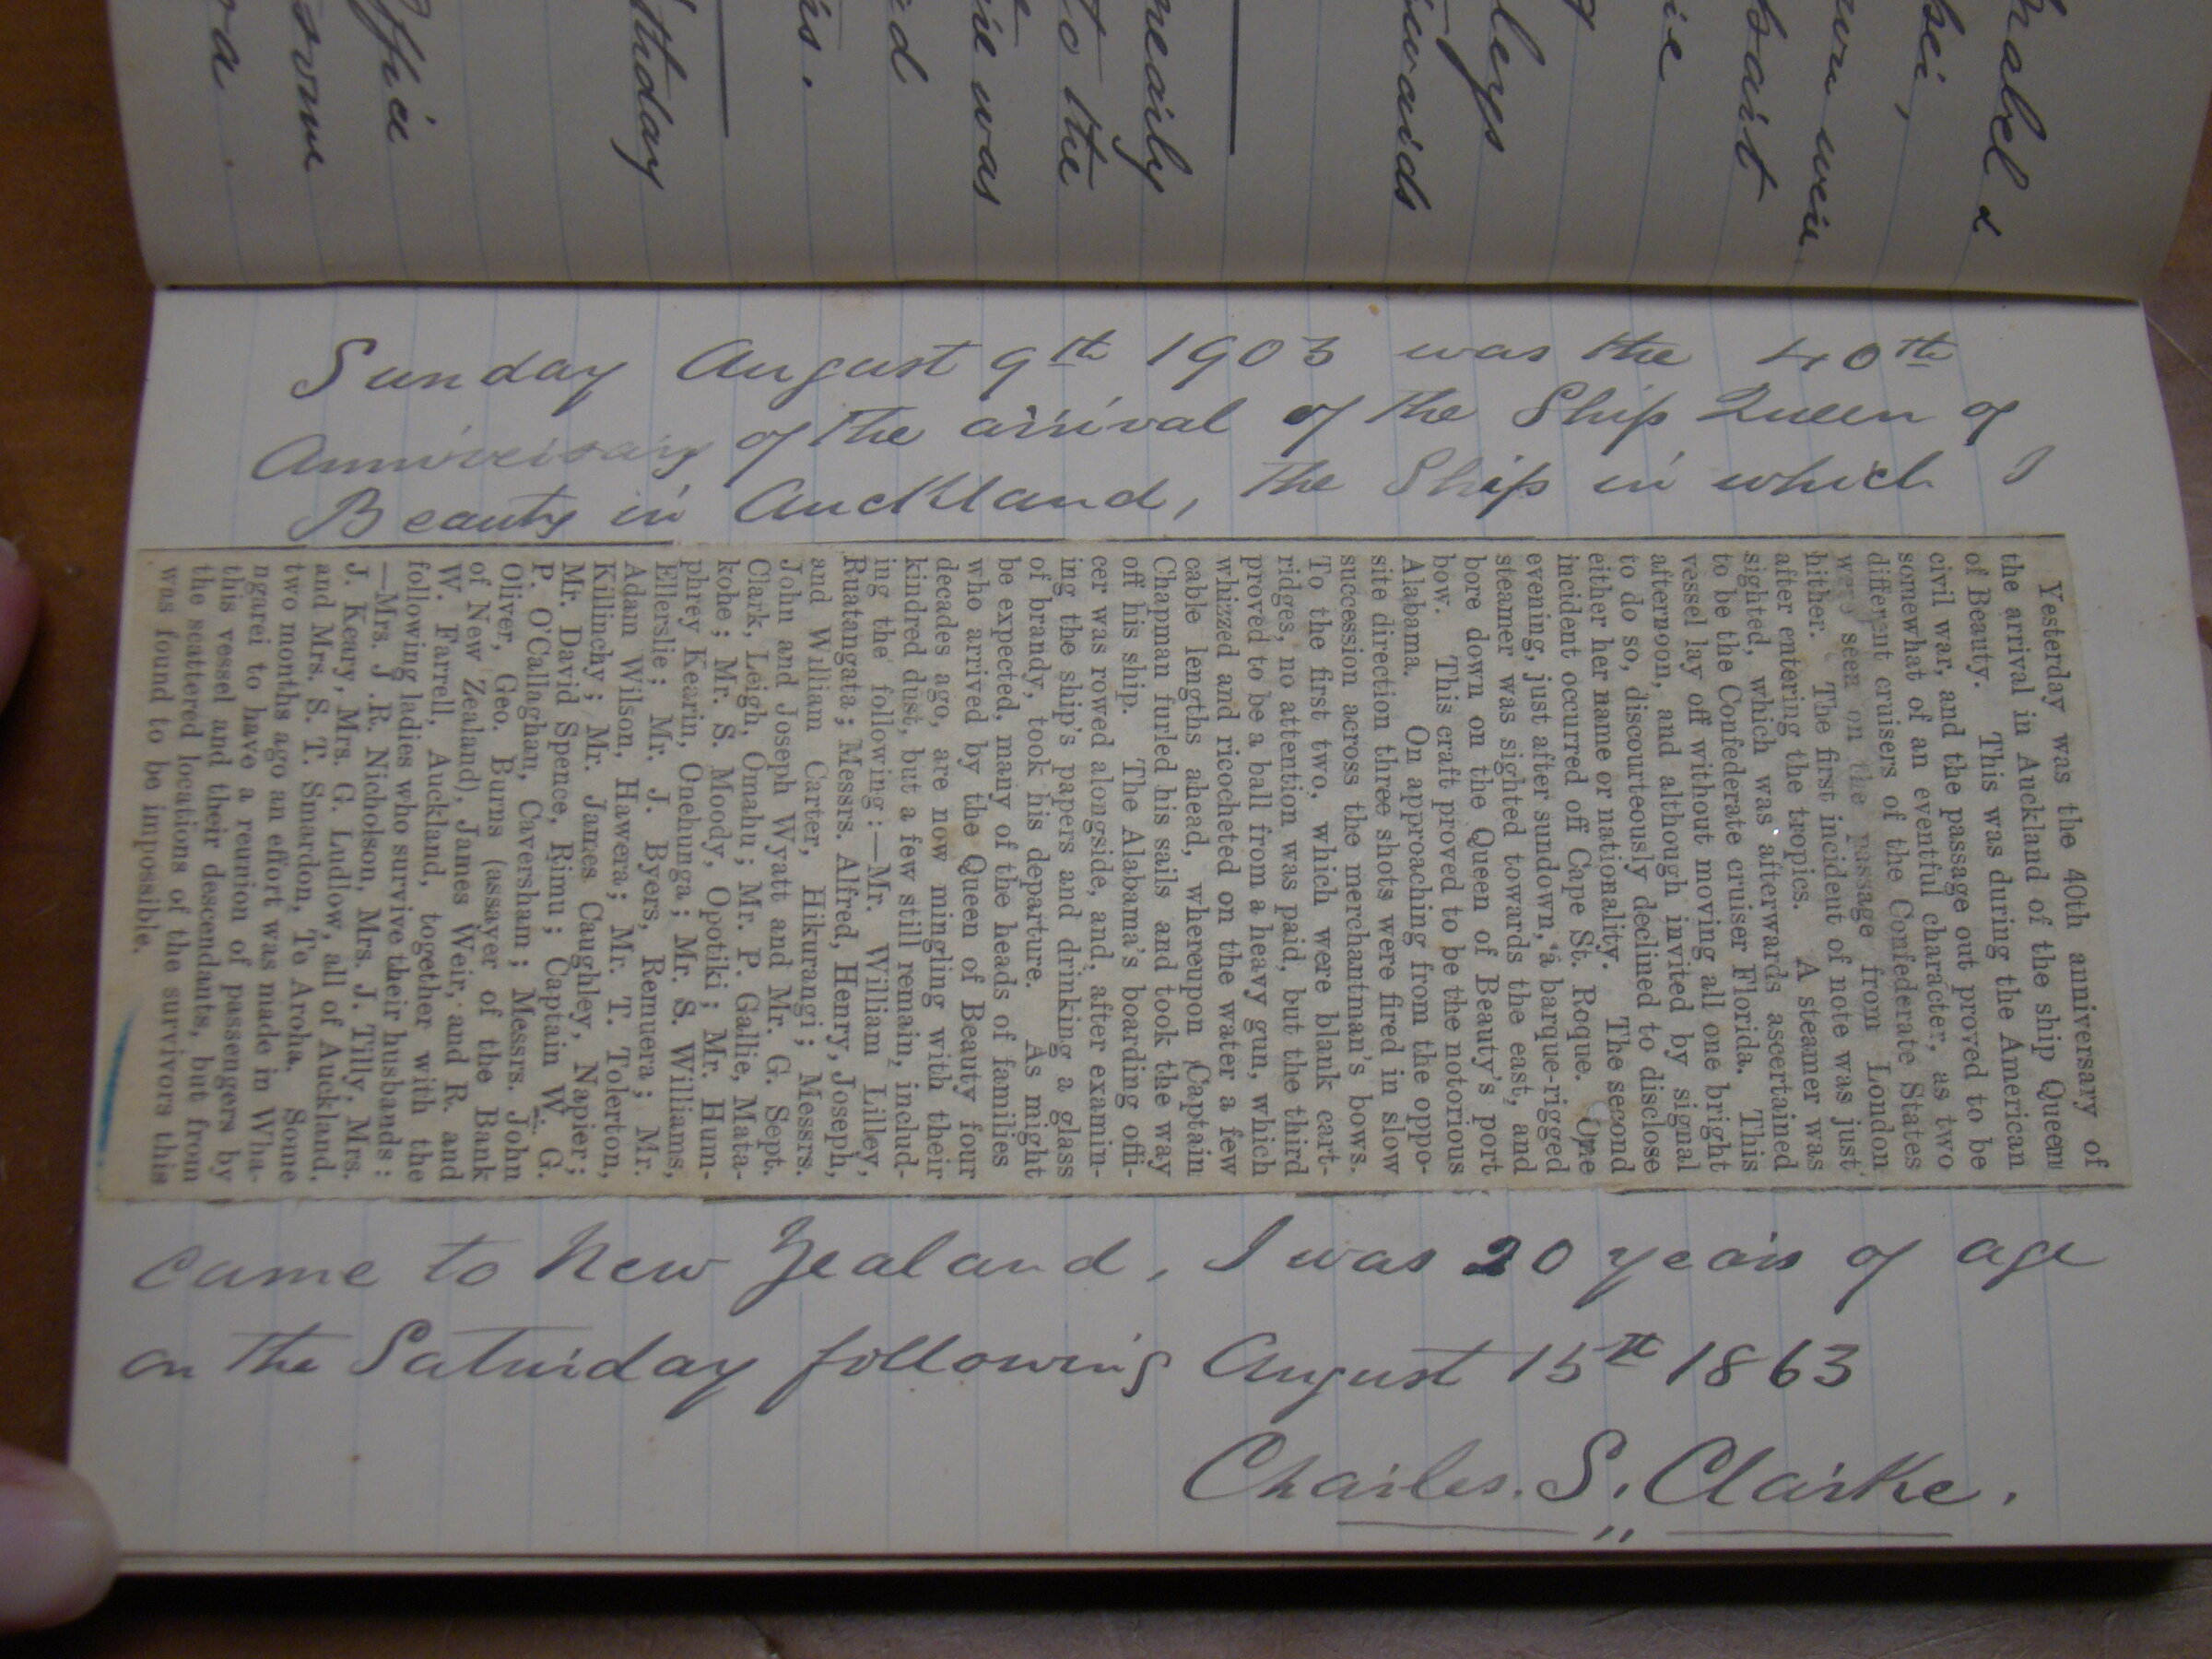 habel &
bei,
wn were
bait
ie
leys
wards
neaily
to the
ie was
ed
is.
thday
ffice
some
ra.
Sunday August 9th 1903 was the 40th
Anniversary of the arrival of the Ship Queen of
Beauty in Auckland, the Ship in which I
Yesterday was the 40th anniversary of
the arrival in Auckland of the ship Queen
of Beauty. This was during the American
civil war, and the passage out proved to be
somewhat of an eventful character, as two
different cruisers of the Confederate States
were seen on the passage from London
hither. The first incident of note was just
after entering the tropics. A steamer was
sighted, which was afterwards ascertained
to be the Confederate cruiser Florida. This
vessel lay off without moving all one bright
afternoon, and although invited by signal
to do so, discourteously declined to disclose
either her name or nationality. The second
incident occurred off Cape St. Roque. One
evening, just after sundown, a barque-rigged
steamer was sighted towards the east, and
bore down on the Queen of Beauty's port
bow. This craft proved to be the notorious
Alabama. On approaching from the oppo-
site direction three shots were fired in slow
succession across the merchantman's bows.
To the first two, which were blank cart-
ridges, no attention was paid, but the third
proved to be a ball from a heavy gun, which
whizzed and ricocheted on the water a few
cable lengths ahead, whereupon Captain
Chapman furled his sails and took the way
off his ship. The Alabama's boarding offi-
cer was rowed alongside, and, after examin-
ing the ship's papers and drinking a glass
of brandy, took his departure. As might
be expected, many of the heads of families
who arrived by the Queen of Beauty four
decades ago, are now mingling with their
kindred dust, but a few still remain, includ-
ing the following:—Mr. William Lilley,
Ruatangata; Messrs. Alfred, Henry, Joseph,
and William Carter, Hikurangi; Messrs.
John and Joseph Wyatt and Mr. G. Sept.
Clark, Leigh, Omahu; Mr. P. Gallie, Mata-
kohe; Mr. S. Moody, Opotiki; Mr. Hum-
phrey Kearin, Onehunga; Mr. S. Williams,
Ellerslie; Mr. J. Byers, Remuera; Mr.
Adam Wilson, Hawera; Mr. T. Tolerton,
Killinchy; Mr. James Caughley, Napier;
Mr. David Spence, Rimu; Captain W. G.
P. O'Callaghan, Caversham; Messrs. John
Oliver, Geo. Burns (assayer of the Bank
of New Zealand), James Weir, and R. and
W. Farrell, Auckland, together with the
following ladies who survive their husbands:
—Mrs. J .R. Nicholson, Mrs. J. Tilly, Mrs.
J. Keary, Mrs. G. Ludlow, all of Auckland,
and Mrs. S. T. Smardon, Te Aroha. Some
two months ago an effort was made in Wha-
ngarei to have a reunion of passengers by
this vessel and their descendants, but from
the scattered locations of the survivors this
was found to be impossible.
came to New Zealand, I was 20 years of age
on the Saturday following August 15th 1863
Charles. S. Clarke.